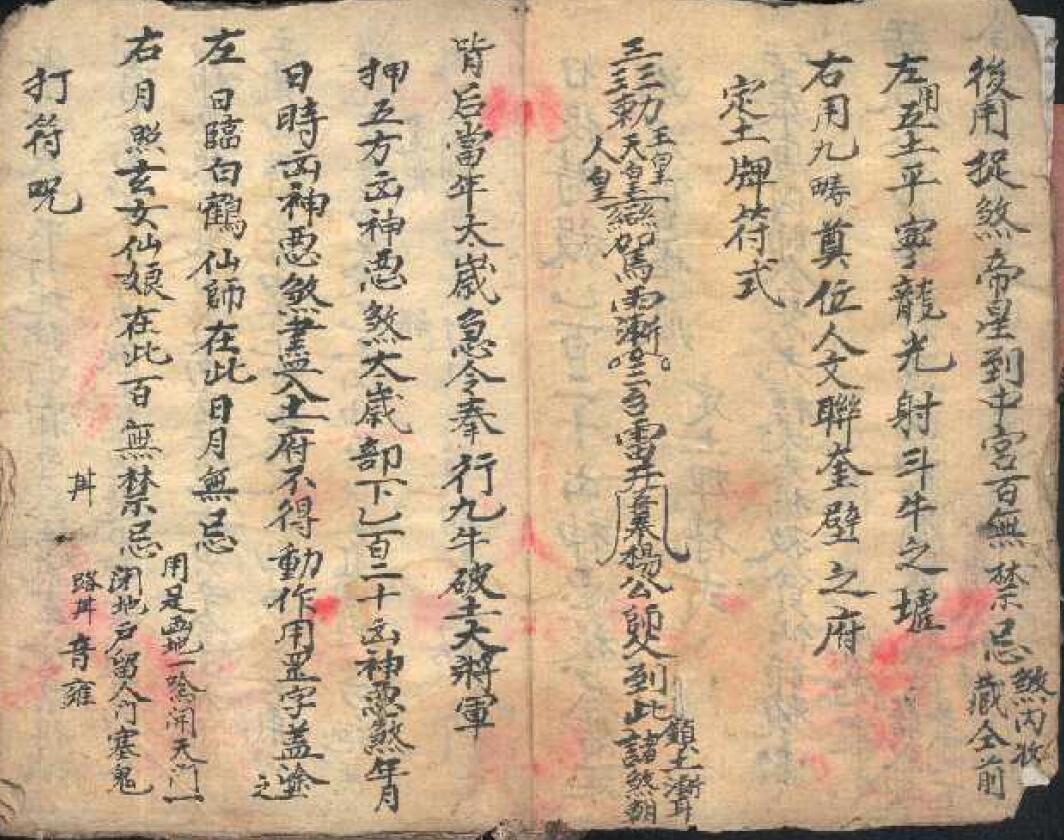 後用捉煞帝星到中宮百無禁忌 煞內收藏全前
左用五土平寧龍光射斗牛之墟
右用九疇奠位人文聯奎壁之府
定土牌符式
勅 玉皇 天皇 人皇 駕 雷 楊公師父到此 鎮土 諸煞朝
皆后當年大歲急令奉行九牛破土大將軍
押五方凶神惡煞大歲部下乙百二十凶神惡煞年月
日時凶神惡煞盡入土府不得動作用罡字蓋塗之
左日臨白鶴仙師在此日月無忌
右月照玄女仙娘在此百無禁忌
用是画地一 開天門一
閉地戶留人門塞鬼
路 井 音雍
打符呪